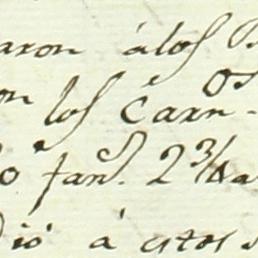 aron á los
on los Carn.os
o fan.s 2 3/4 a
dió á estos